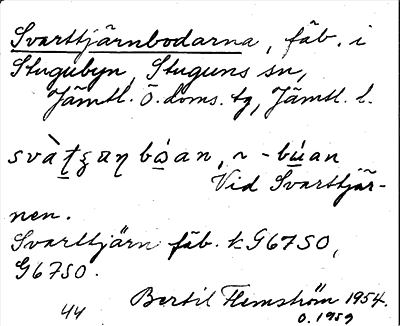 Svarttjärnbodarna, fäb. i
Stugubyn, Stuguns sn,
Jämtl. Ö. doms. tg, Jämtl. l.
svàt̠ʂaŋ bo̠án, ~ -bú̠an
Vid Svarttjär-
nen.
Svarttjärn fäb. k G67SO,
G67SO.
44 Bertil Flemström 1954.
o. 1959